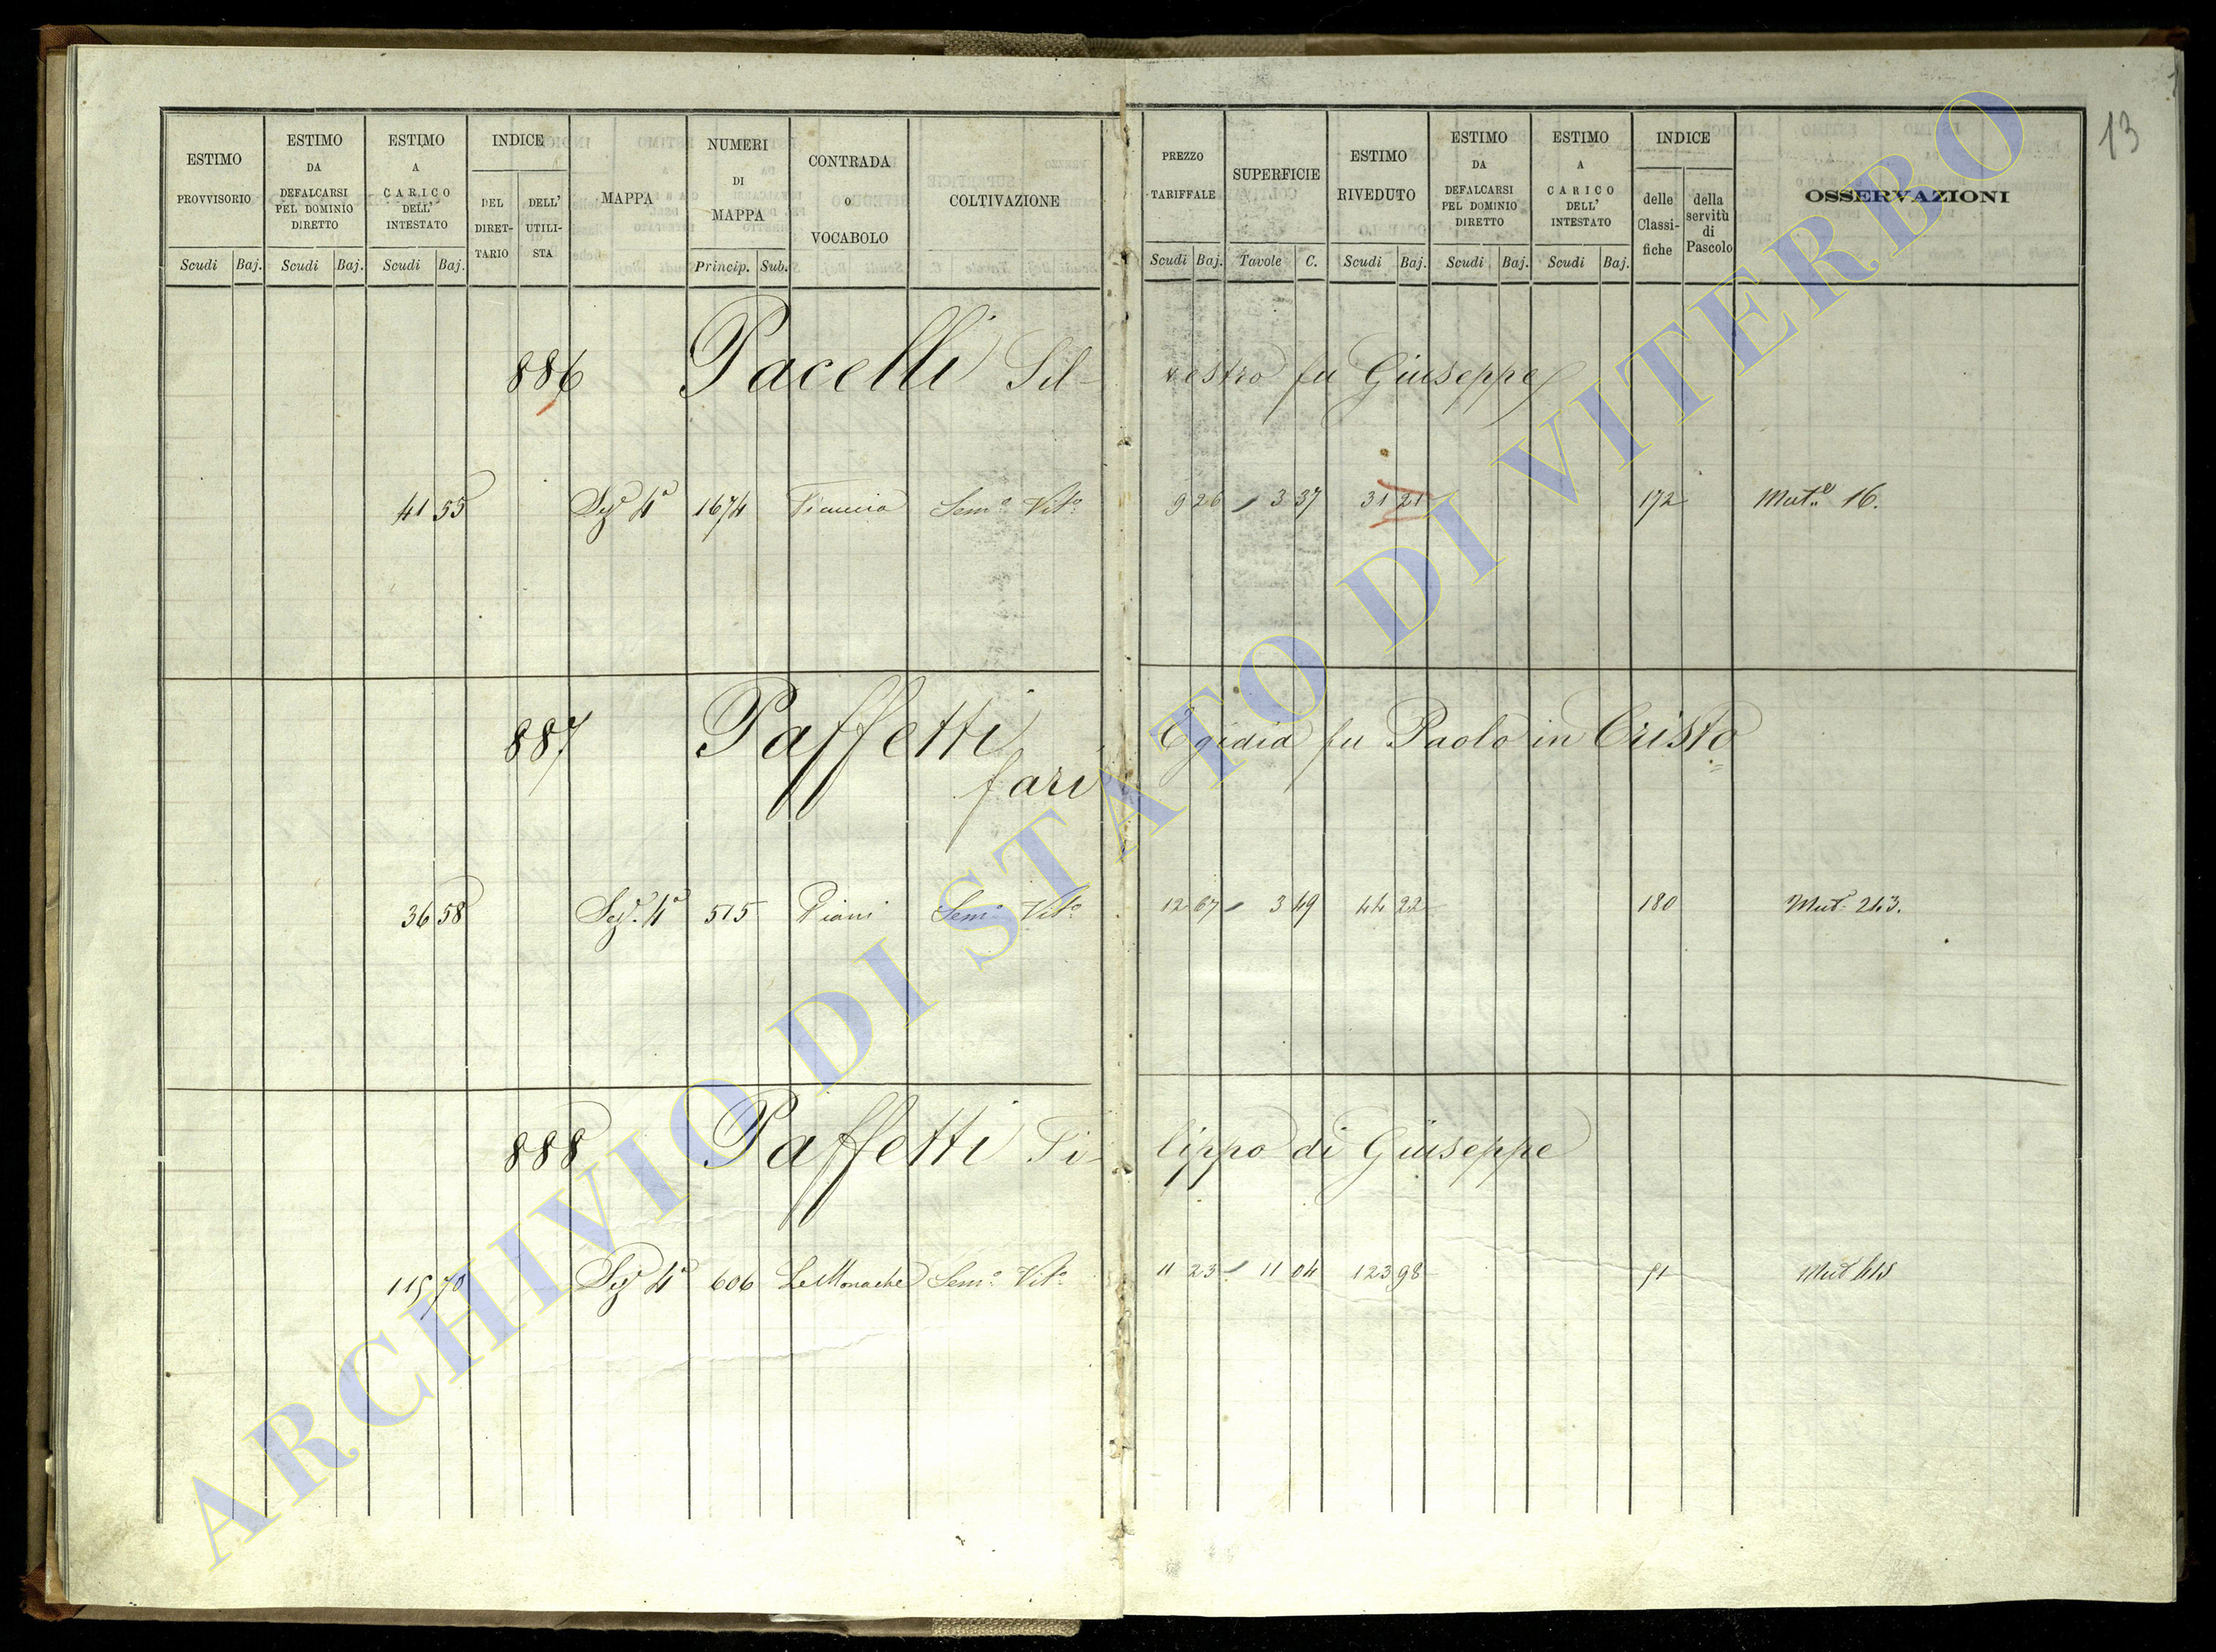 13
ESTIMO PROVVISORIO
Scudi Baj.
ESTIMO DA DEFALCARSI PEL DOMINIO DIRETTO
Scudi Baj.
ESTIMO A CARICO DELL' INTESTATO
Scudi Baj.
INDICE
DEL DIRET-TARIO
DELL' UTILI-STA
MAPPA
NUMERI DI MAPPA
Princip. Sub.
CONTRADA o VOCABOLO
COLTIVAZIONE
PREZZO TARIFFALE
Scudi Baj.
SUPERFICIE
Tavole C.
ESTIMO RIVEDUTO
Scudi Baj.
ESTIMO DA DEFALCARSI PEL DOMINIO DIRETTO
Scudi Baj.
ESTIMO A CARICO DELL' INTESTATO
Scudi Baj.
INDICE
delle Classi-fiche
della servitù di Pascolo
OSSERVAZIONI
886 Pacelli Sil- vestro fu Giuseppe
41 55 Sez. 4a 1674 Semo Vito 9 26 3 37 31 21 172 16.
887 Paffetti Egidia fu Paolo in Cristo
fari
36 58 Sez. 4a 515 Piani Semo Vito 12 67 3 49 44 22 180 Mut. 243.
888 Paffetti Fi- lippo di Giuseppe
115 70 Sez 4a 606 Le Monache Semo Vito 11 23 11 04 123 98 51
ARCHIVIO DI STATO DI VITERBO